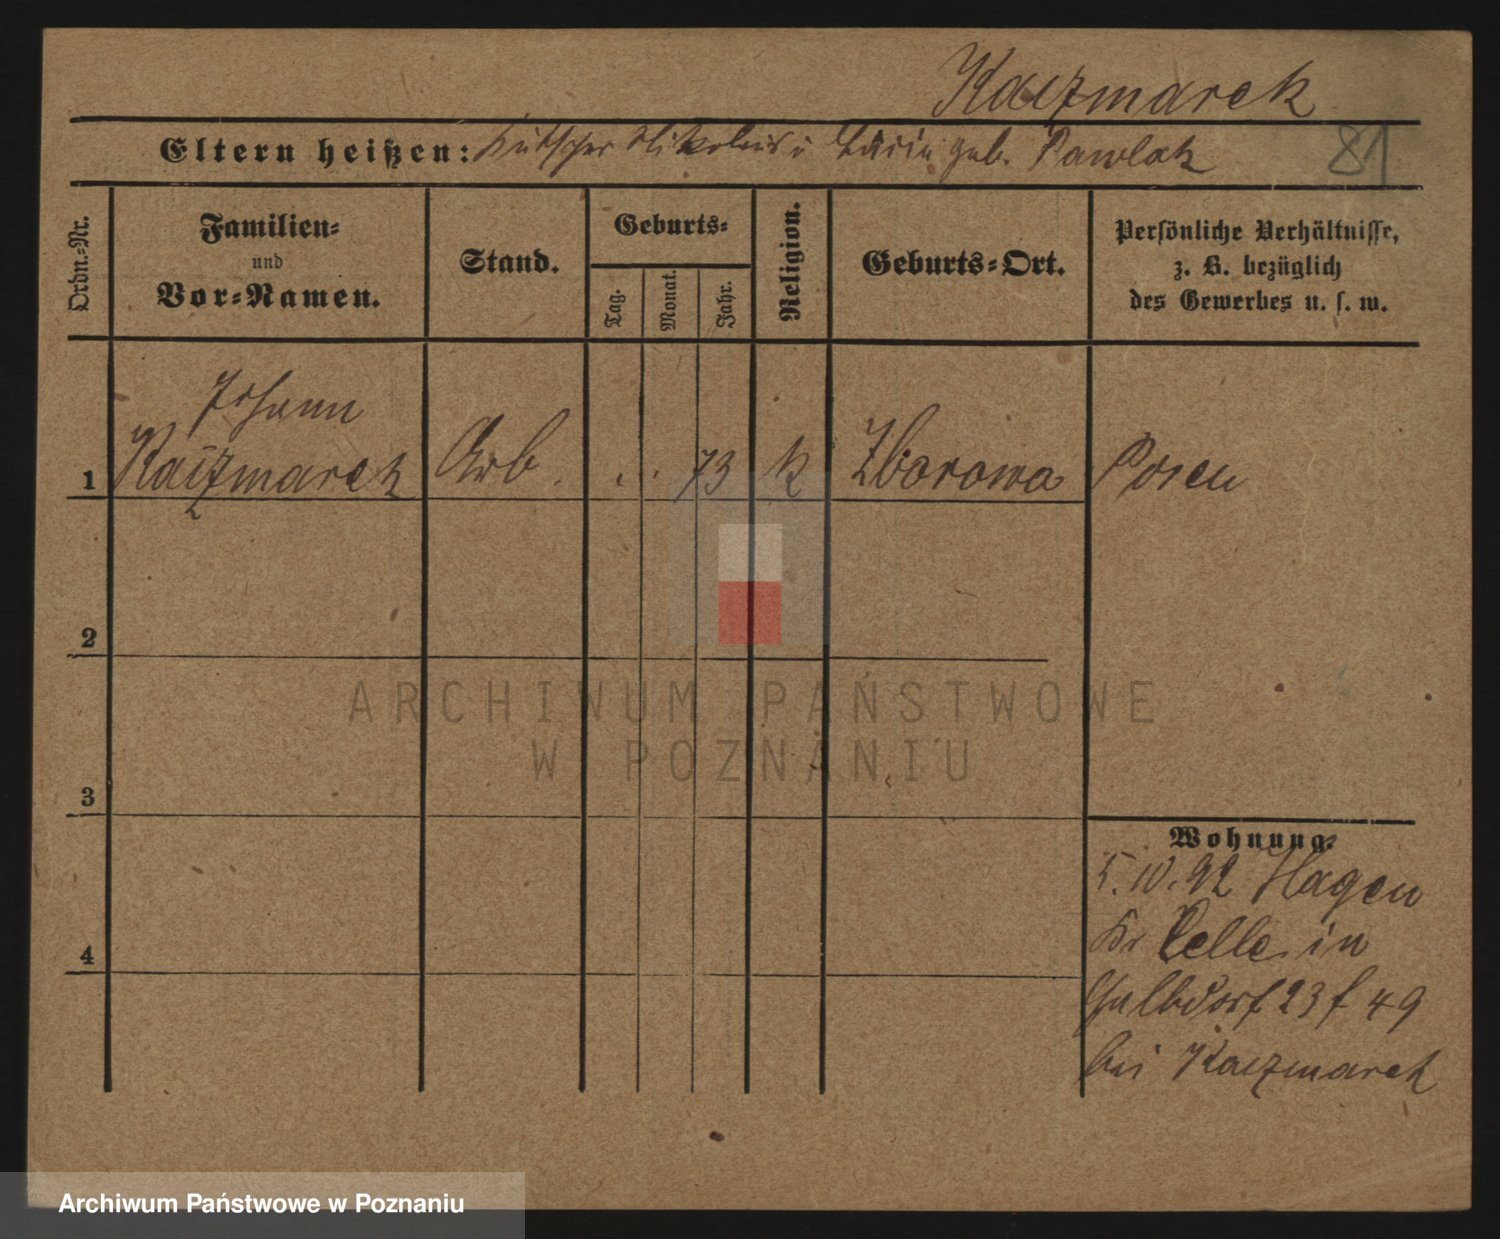 Kaczmarek
Eltern heißen: Kutscher Nikolaus u Maria geb. Pawlak
81
Ordn.-Nr.
Familien-
und
Vor-Namen.
Stand.
Geburts-
Tag.
Monat.
Jahr.
Religion.
Geburts-Ort.
Persönliche Verhältnisse,
z. B. bezüglich
des Gewerbes u. s. w.
Johann
1 Kaczmarek Arb. 73 k Zborowo Posen
2
ARCHIWUM PAŃSTWOWE
W POZNANIU
3
Wohnung.
5.10.92 Hagen
Kr Celle in
Halbdorf 23 f 49
4
bei Kaczmarek
Archiwum Państwowe w Poznaniu